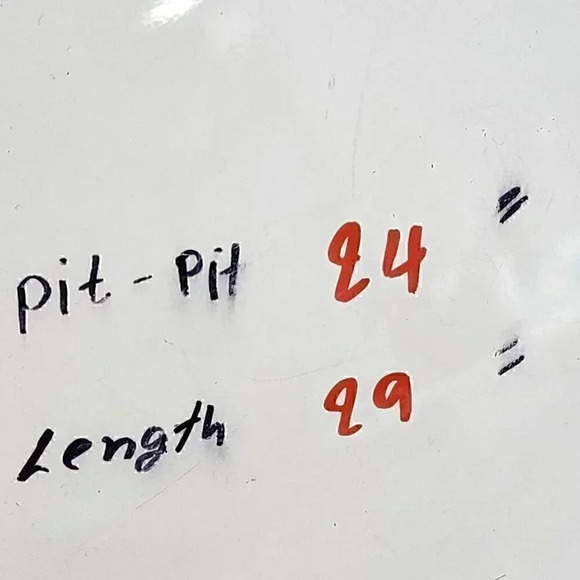 pit - Pit 24 "
Length 29 "